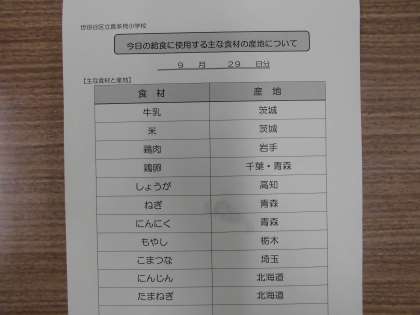 世田谷区立喜多見小学校
今日の給食に使用する主な食材の産地について
9 月 29 日分
【主な食材と産地】
食 材 産 地
牛乳 茨城
米 茨城
鶏肉 岩手
鶏卵 千葉・青森
しょうが 高知
ねぎ 青森
にんにく 青森
もやし 栃木
こまつな 埼玉
にんじん 北海道
たまねぎ 北海道